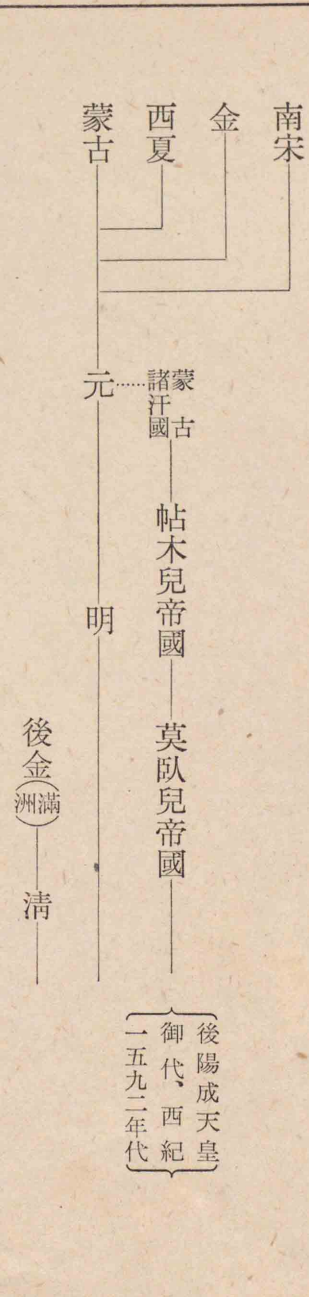 南宋
金
西夏
蒙古
蒙古
諸汗國
帖木兒帝國
莫臥兒帝國
元
明
後金(滿洲)
淸
後陽成天皇
御代、西紀
一五九二年代